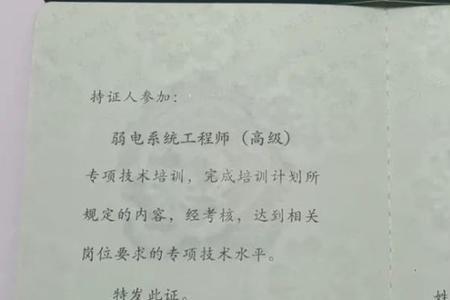 持证人参加：
弱电系统工程师（高级）
专项技术培训，完成培训计划所
规定的内容，经考核，达到相关
岗位要求的专项技术水平。
特发此证。
姓